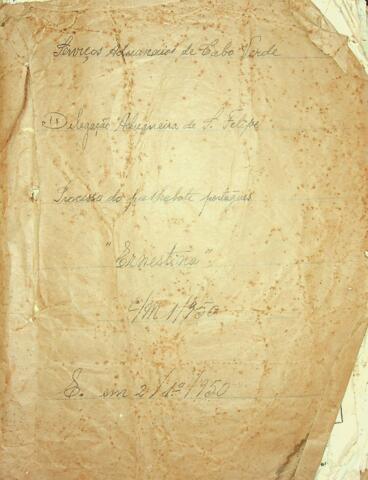 Serviços Aduaneiros de Cabo Verde
Delegação Aduaneira de S. Filipe
Processo do palhabote português
"Ernestina"
C/M 1/950
E. em 2/1º/950